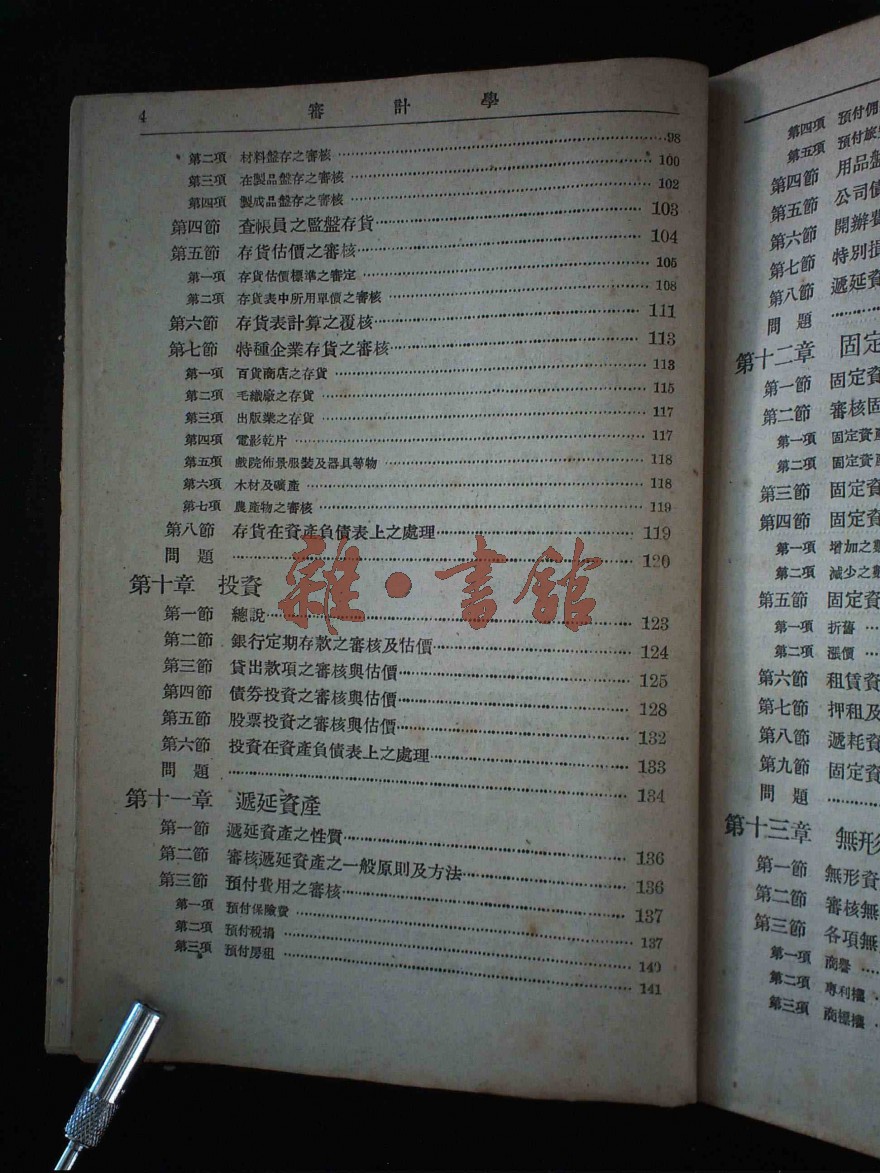 4 審計學
第二項 材料盤存之審核 98
第三項 在製品盤存之審核 100
第四項 製成品盤存之審核 102
第四節 查帳員之監盤存貨 103
第五節 存貨估價之審核 104
第一項 存貨估價標準之審定 105
第二項 存貨表中所用單價之審核 108
第六節 存貨表計算之覆核 111
第七節 特種企業存貨之審核 113
第一項 百貨商店之存貨 113
第二項 毛織廠之存貨 115
第三項 出版業之存貨 117
第四項 電影乾片 117
第五項 戲院佈景服裝及器具等物 118
第六項 木材及礦產 118
第七項 農產物之審核 119
第八節 存貨在資產負債表上之處理 119
問題 120
雜·書館
第十章 投資
第一節 總說 123
第二節 銀行定期存款之審核及估價 124
第三節 貸出款項之審核與估價 125
第四節 債券投資之審核與估價 128
第五節 股票投資之審核與估價 132
第六節 投資在資產負債表上之處理 133
問題 134
第十一章 遞延資產
第一節 遞延資產之性質 136
第二節 審核遞延資產之一般原則及方法 136
第三節 預付費用之審核 137
第一項 預付保險費 137
第二項 預付稅捐 140
第三項 預付房租 141
第四項 預付佣
第五項 預付旅
第四節 用品盤
第五節 公司債
第六節 開辦費
第七節 特別損
第八節 遞延資
問題
第十二章 固定
第一節 固定資
第二節 審核固
第一項 固定資產
第二項 固定資產
第三節 固定資
第四節 固定資
第一項 增加之
第二項 減少之
第五節 固定資
第一項 折舊
第二項 漲價
第六節 租賃資
第七節 押租及
第八節 遞耗資
第九節 固定資
問題
第十三章 無形
第一節 無形資
第二節 審核無
第三節 各項無
第一項 商譽
第二項 專利權
第三項 商標權